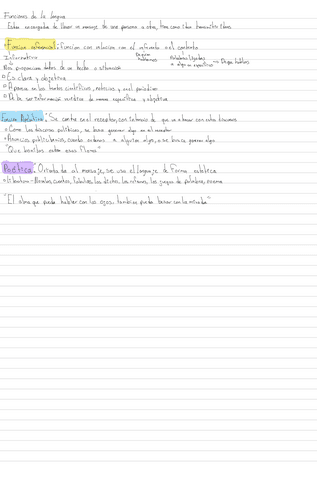 Funciones de la lengua
Estan encargadas de llevar un mensaje de una persona a otra, tiene como fibra
Funcion referencial: Funcion con relacion con el referente o el contexto
Informativo
Nos proporciona datos de un hecho o situacion
Es clara y objetiva
Aparece en los textos cientificos, noticias y en el periodico
Debe ser informacion veridica de manera especifica y objetiva
Se centra en el receptor, con intencion de que va a hacer con esta
Como los discursos politicos, se busca generar algo en el receptor
Anuncios publicitarios, cuando ordenan a alguien algo, se busca generar algo
"Que bonitas estan esas flores"
Poetica: Orientada al mensaje, se usa el lenguaje de forma estetica
literatura - Novelas, cuentos, fabulas, los dichos, los refranes, los juegos de palabras, poema
"El alma que puede hablar con los ojos, tambien puede besar con la mirada"